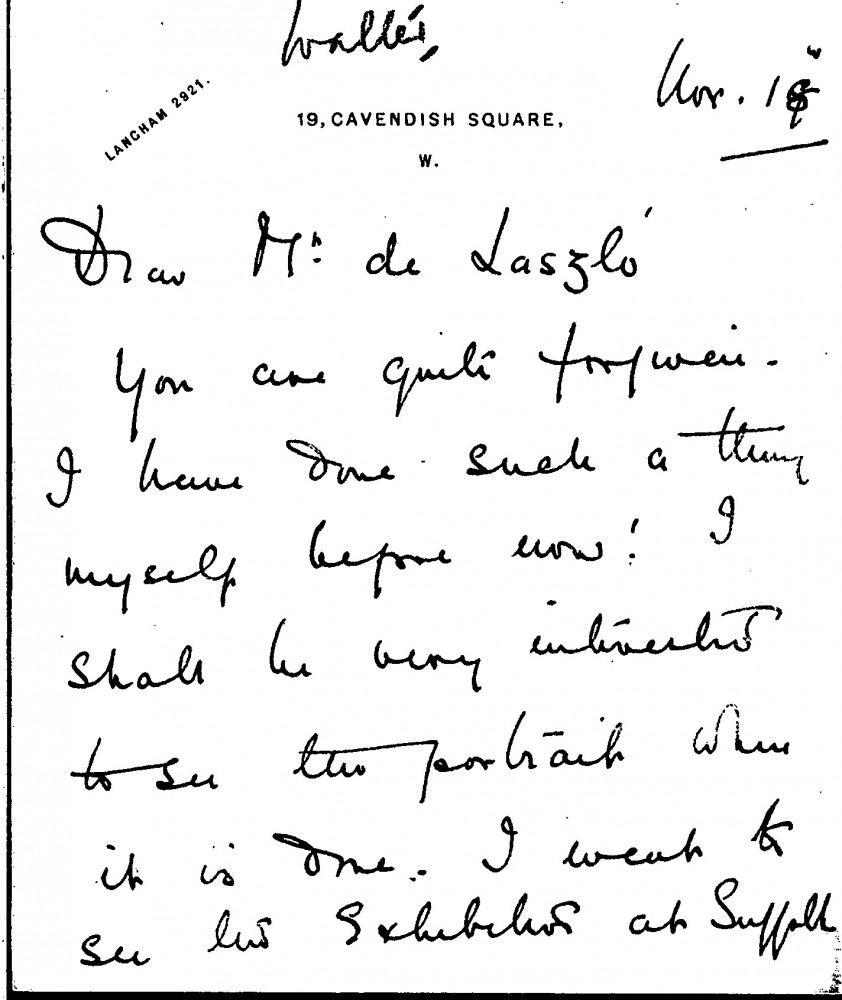 Walter,
Nov. 18
LANGHAM 2921.
19, CAVENDISH SQUARE,
W.
Dear Mr: de Laszló
You are quite forgiven.
I have done such a thing
myself before now! I
shall be very interested
to see the portrait when
it is done. I went to
see the Exhibition at Suffolk